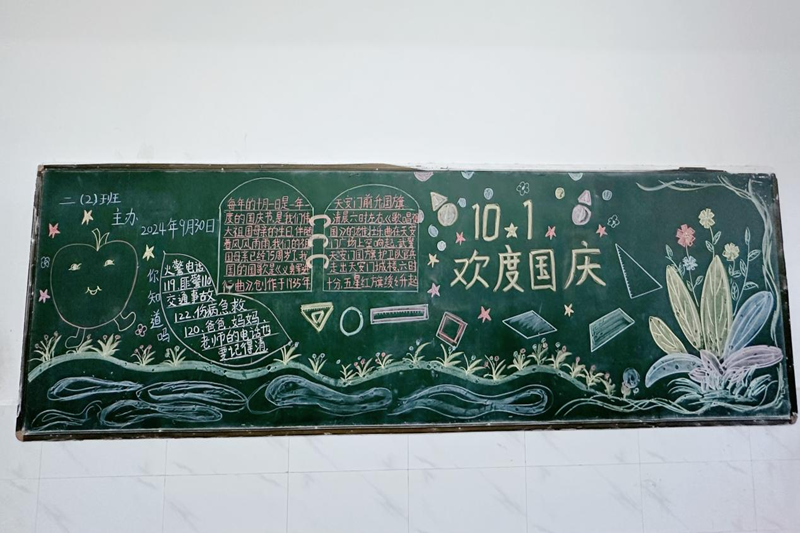 二(2)班
主办
2024年9月30日
你知道吗
火警电话
119 匪警110
交通事故
122.伤病急救
120.爸爸.妈妈.
老师的电话也
要记清
每年的十月一日是一年
度的国庆节,是我们伟
大祖国母亲的生日
春风风雨雨,我们的
国的国歌是《义勇军进
行曲》创作于1935年
天安门前升国旗
清晨六时左右
国》的雄壮乐曲在天安
门广场上空响起,武警
天安门国旗护卫队正
走出天安门城楼,六时
十分,五星红旗
10.1
欢度国庆